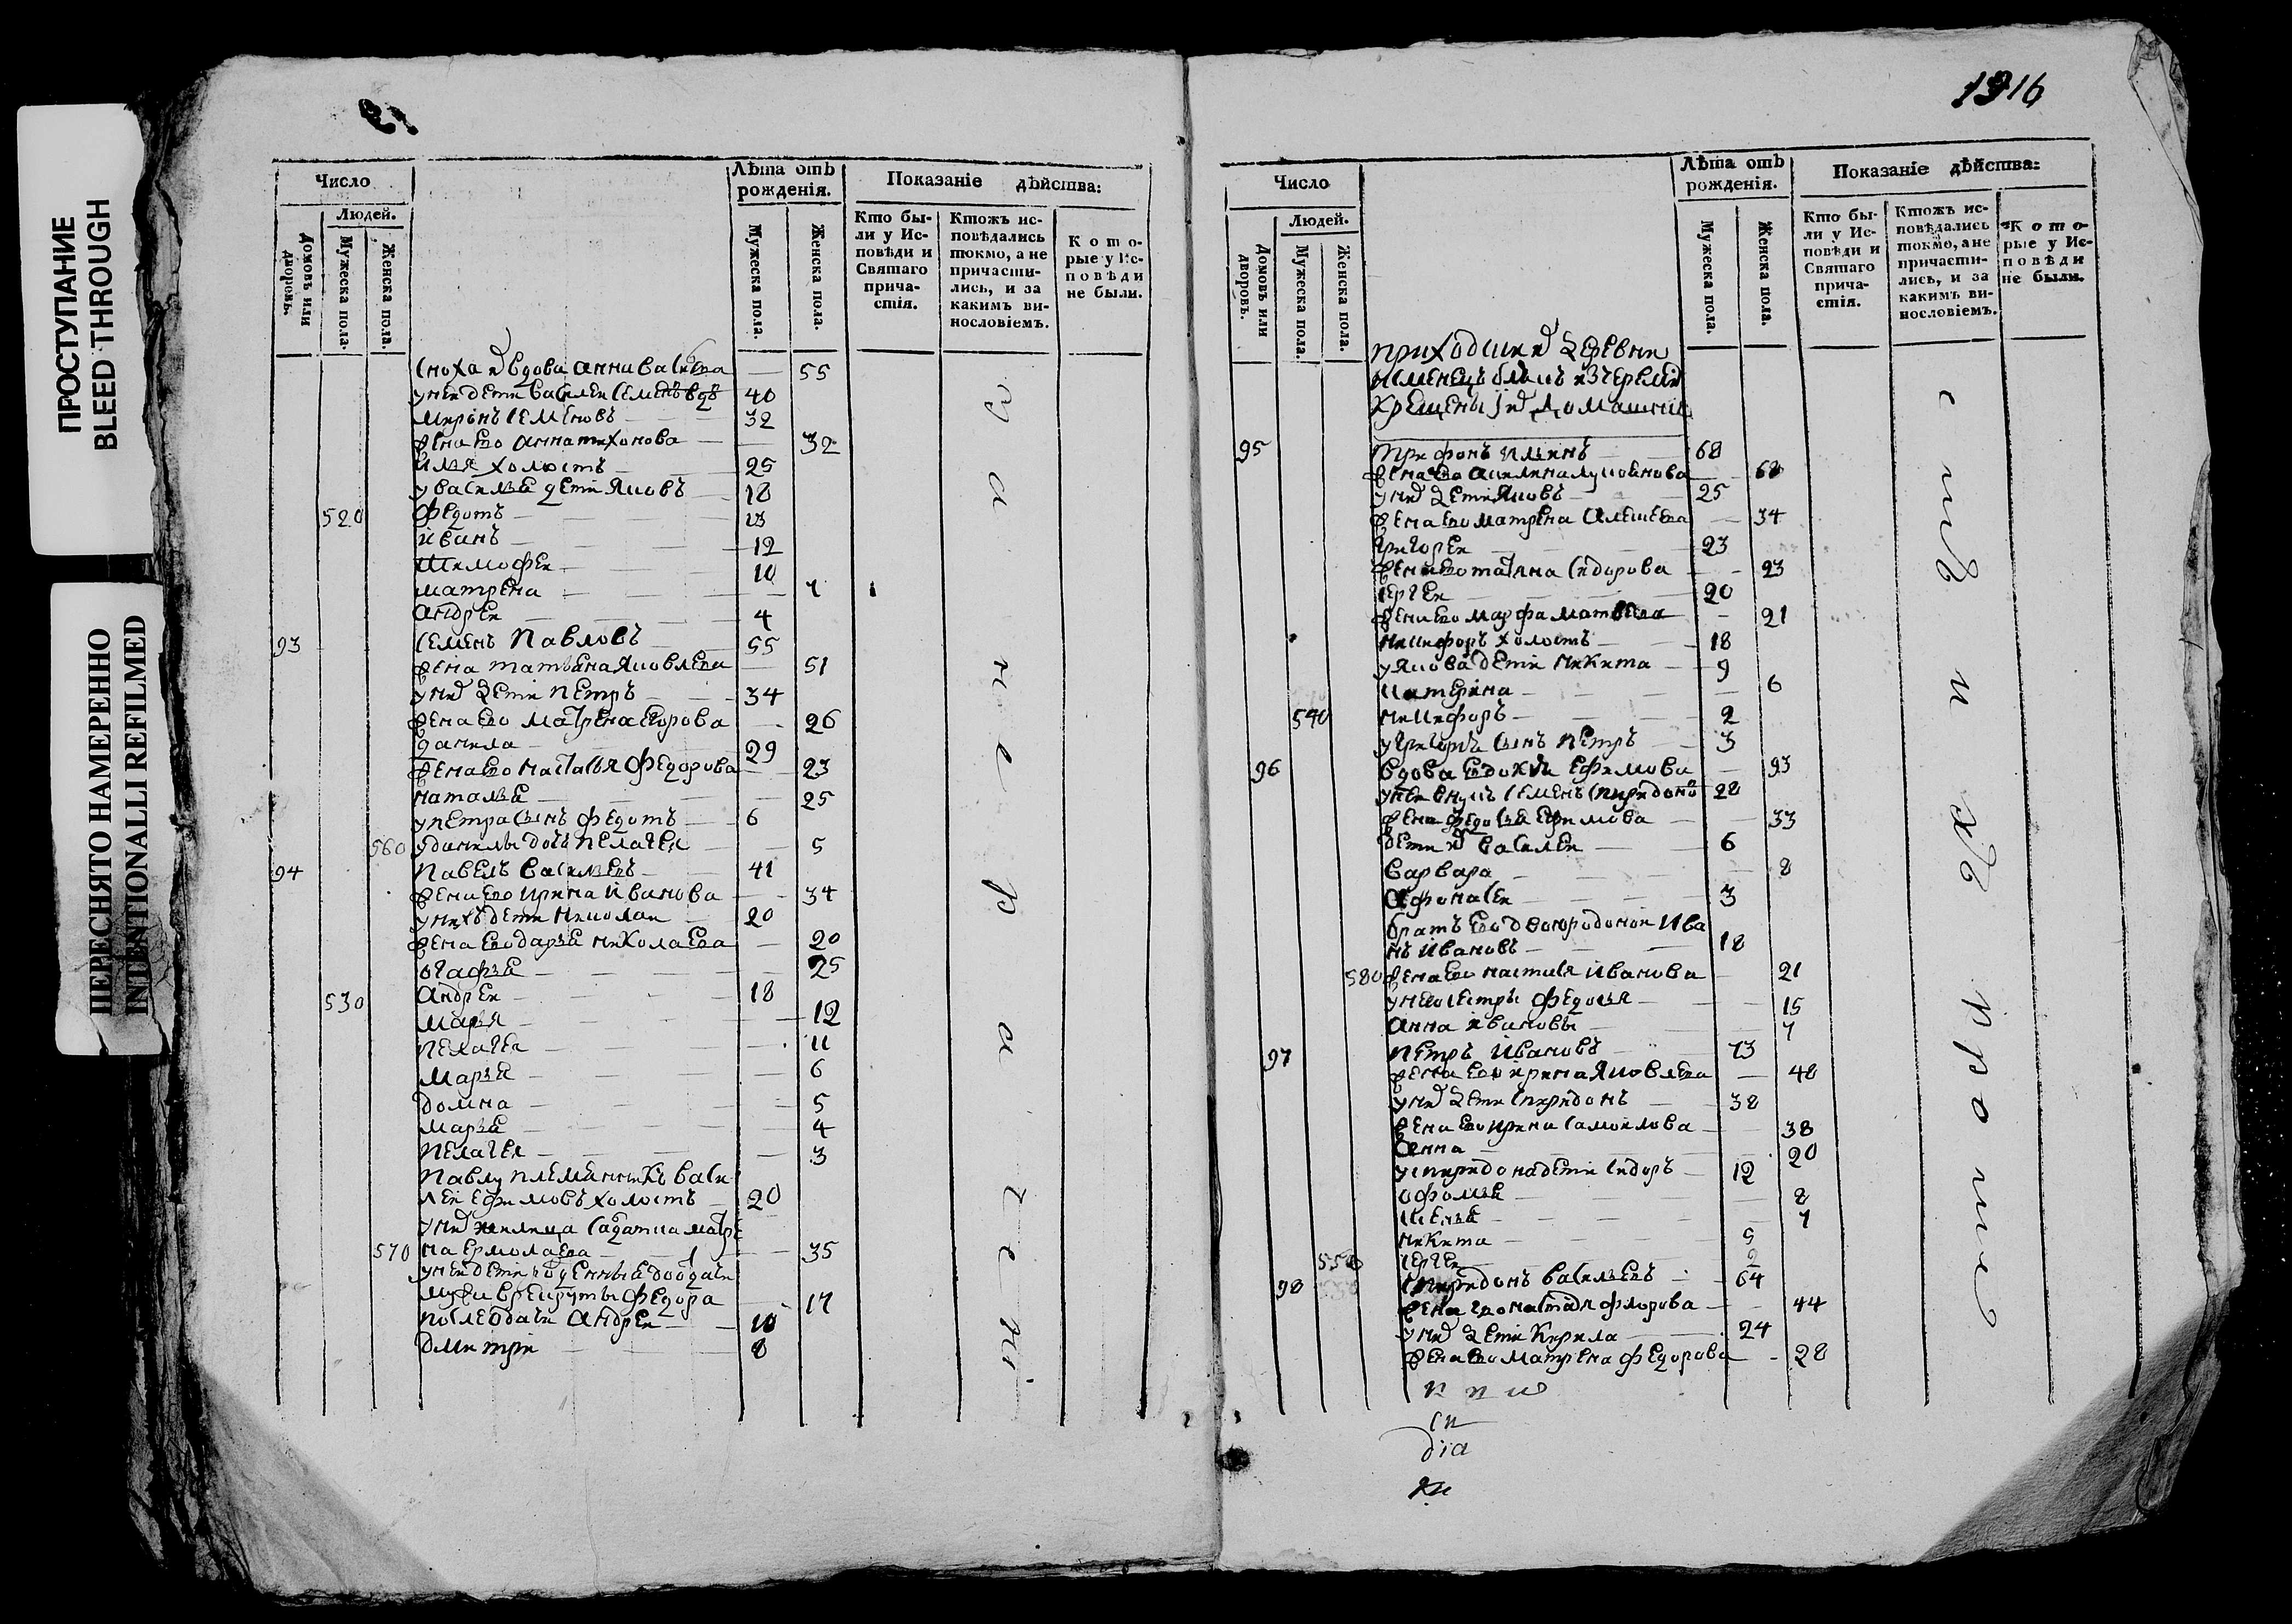 ПРОСТУПАНИЕ
BLEED THROUGH
ПЕРЕСНЯТО НАМЕРЕННО
INTENTIONALLI REFILMED
Число
Людей.
Домовъ или дворовъ.
Мужеска пола.
Женска пола.
Лѣта отъ рожденія.
Мужеска пола.
Женска пола.
Показаніе дѣйства:
Кто бы-
ли у Ис-
повѣди и
Святаго
прича-
стія.
Ктожъ ис-
повѣдались
токмо, а не
причасти-
лись, и за
какимъ ви-
нословіемъ.
К о т о-
рые у Ис-
п о в ѣ д и
не были.
сноха вдова анна васильева — 55
у неи дети василеи семеновъ 40
миронъ семеновъ — 32
жена ево анна тихонова — 32
илья холостъ — 25
у василья дети яковъ — 18
520 федотъ — 13
иванъ — 12
тимофеи — 10
матрена — 7
андреи — 4
93 семенъ павловъ — 55
жена татьяна яковлева — 51
у них дети петръ — 34
жена ево матрена егорова — 26
данила — 29
жена ево настасья федорова — 23
наталья — 25
у петра сынъ федотъ — 6
560 у данилы дочь пелагея — 5
94 павелъ васильевъ — 41
жена ево ирина иванова — 34
у нихъ дети николаи — 20
жена ево дарья николаева — 20
огафья — 25
530 андреи — 18
марья — 12
пелагея — 11
марья — 6
домна — 5
марья — 4
пелагея — 3
павлу племянникъ васи
леи ефимовъ холостъ — 20
у них жилица салдатка матре
570 на ермолаева — 35
у неи дети
федора — 17
после отдачи андреи — 10
дмитри — 8
1316
Число
Людей.
Домовъ или дворовъ.
Мужеска пола.
Женска пола.
Лѣта отъ рожденія.
Мужеска пола.
Женска пола.
Показаніе дѣйства:
Кто бы-
ли у Ис-
повѣди и
Святаго
прича-
стія.
Ктожъ ис-
повѣдались
токмо, а не
причасти-
лись, и за
какимъ ви-
нословіемъ.
К о т о-
рые у Ис-
п о в ѣ д и
не были.
приходские деревни
крещены и их домашние
95 трифонъ ильинъ — 68
жена ево акилина лукоянова — 68
у них дети яковъ — 25
жена ево матрена алексеева — 34
григореи — 23
жена ево татяна сидорова — 23
сергеи — 20
жена ево марфа матвеева — 21
никифоръ холостъ — 18
у якова дети никита — 9
катерина — 6
540 никифоръ — 2
у григорья сынъ петръ — 3
96 вдова евдокия ефимова — 93
у неи внукъ семенъ спиридоно 28
жена федосья ефимова — 33
дети их василеи — 6
варвара — 8
афонасеи — 3
братъ ево двоюродонои ива
нъ ивановъ — 18
580 жена ево настасья иванова — 21
у нево сестры федосья — 15
анна ивановы — 7
97 петръ ивановъ — 73
жена ево ирина яковлева — 48
у них дети спиридонъ — 38
жена ево ирина самоилова — 38
анна — 20
у спиридона дети сидоръ — 12
офомья — 8
7
никита — 5
550 сергеи — 2
98 спиридонъ васильевъ — 64
жена ево настасья флорова — 44
у них дети кирила — 24
жена ево матрена федорова — 28
сп
dia